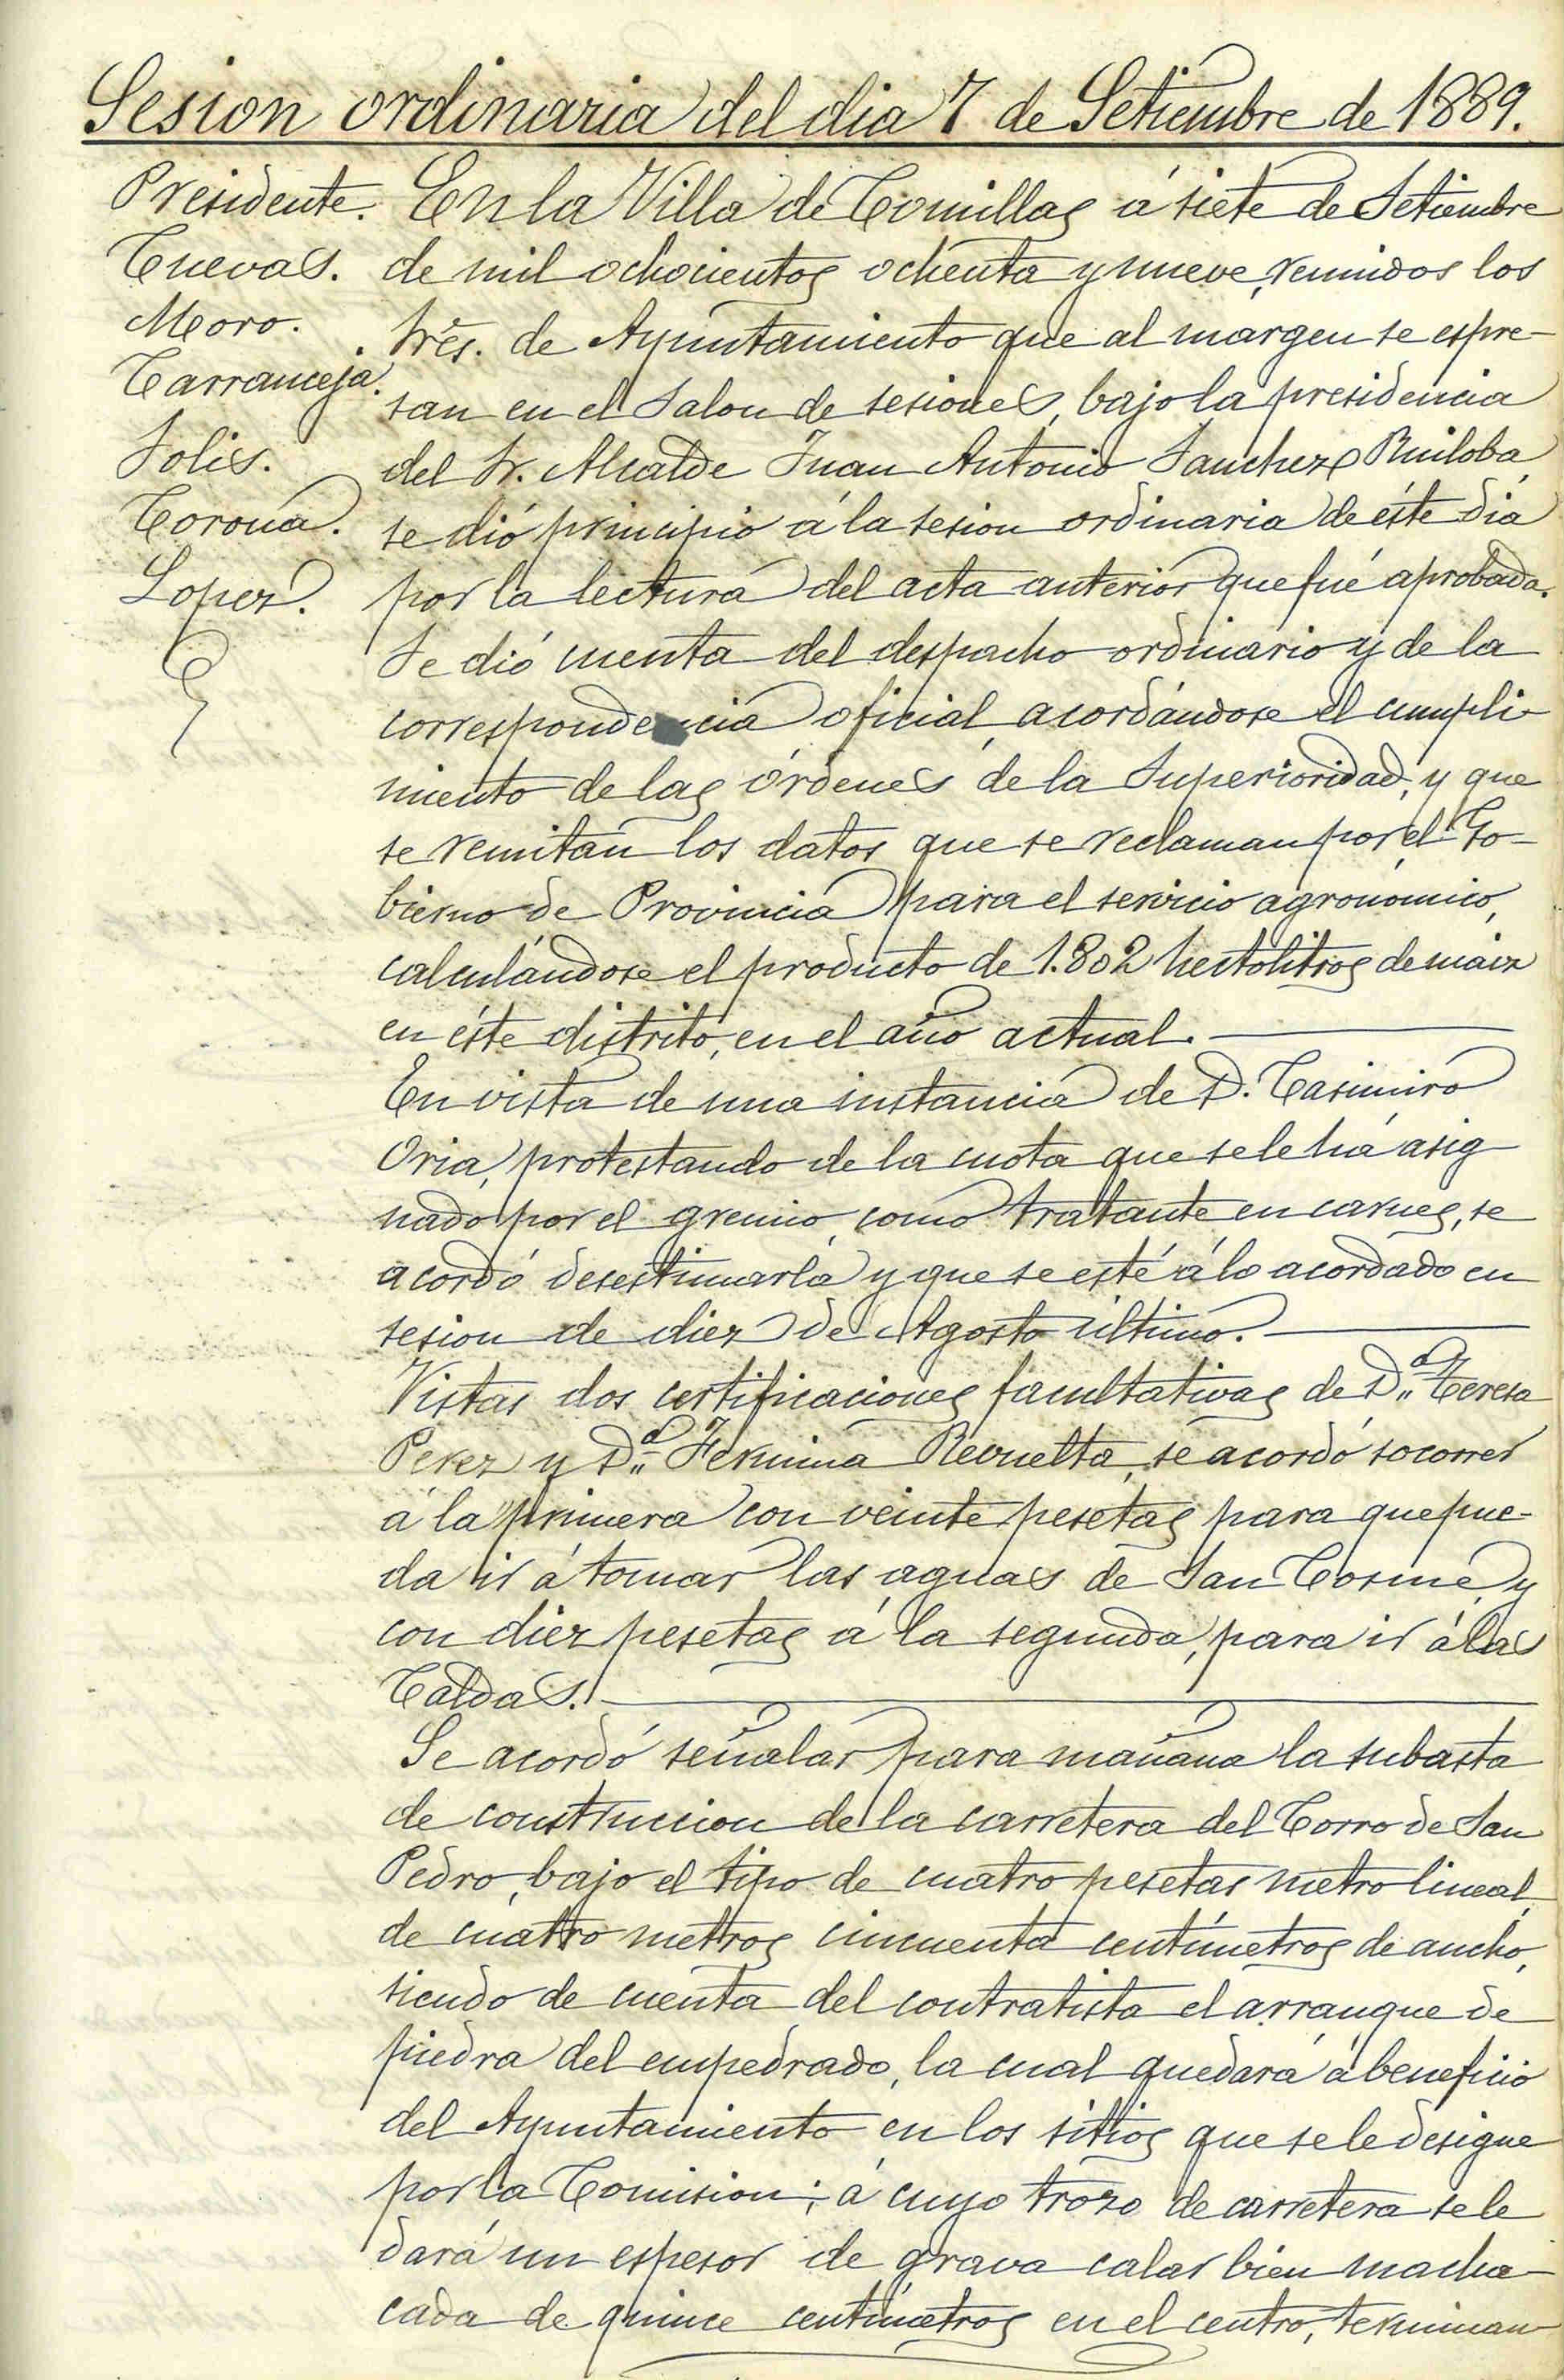 Sesion ordinaria del dia 7 de Setiembre de 1889.
Presidente.
Cuevas.
Moro.
Carranceja.
Solis.
Corona.
Lopez.
En la Villa de Comillas á siete de Setiembre
de mil ochocientos ochenta y nueve, reunidos los
Sres. de Ayuntamiento que al margen se espre-
san en el Salon de sesiones, bajo la presidencia
del Sr. Alcalde Juan Antonio Sanchez Ruiloba,
se dió principio á la sesion ordinaria de éste dia
por la lectura del acta anterior que fué aprobada.
Se dió cuenta del despacho ordinario y de la
correspondencia oficial, acordándose el cumpli-
miento de las órdenes de la Superioridad, y que
se remitan los datos que se reclaman por el Go-
bierno de Provincia para el servicio agronómico,
calculándose el producto de 1.802 hectolitros de maiz
en éste distrito, en el año actual.
En vista de una instancia de D. Casimiro
Oria, protestando de la cuota que se le há asig-
nado por el gremio, como tratante en carnes, se
acordó desestimarla y que se esté á lo acordado en
sesion de diez de Agosto último.
Vistas dos certificaciones facultativas de D.ª Teresa
Perez y D.ª Fermina Revuelta, se acordó socorrer
á la primera con veinte pesetas para que pue-
da ir á tomar las aguas de San Cosme, y
con diez pesetas á la segunda, para ir á las
Caldas.
Se acordó señalar para mañana la subasta
de construccion de la carretera del Corro de San
Pedro, bajo el tipo de cuatro pesetas metro lineal,
de cuatro metros cincuenta centímetros de ancho,
siendo de cuenta del contratista el arranque de
piedra del empedrado, la cual quedará á beneficio
del Ayuntamiento en los sitios que se le designe
por la Comision; á cuyo trozo de carretera se le
dará un espesor de grava calar bien macha-
cada de quince centímetros en el centro, terminan-